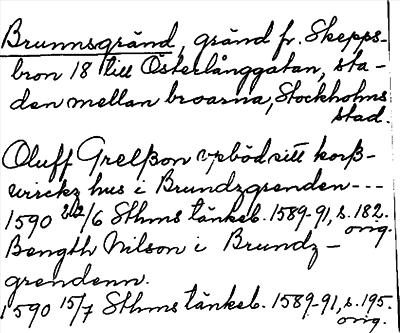 Brunnsgränd, gränd fr. Skepps-
bron 18 till Österlånggatan, sta-
den mellan broarna, Stockholms
stad.
Oluff Grelßon upböd sitt korß-
wirckz hus i Brundzgrenden---
1590 22/6 Sthms tänkeb. 1589-91, s. 182.
orig.
Bength Nilson i Brundz-
grendenn.
1590 15/7 Sthms tänkeb. 1589-91, s. 195.
orig.